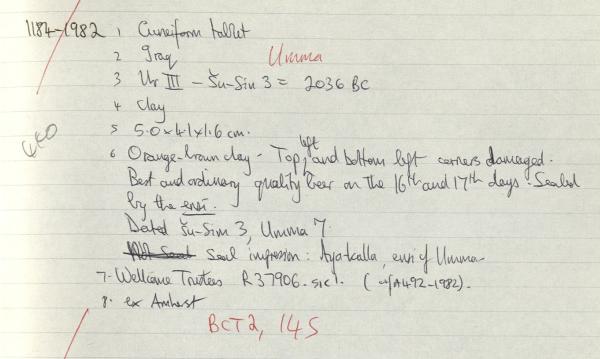 1184-1982 1 Cuneiform tablet
2 Iraq Umma
3 Ur III - Šu-Sin 3 = 2036 BC
4 Clay
5 5.0 x 4.1 x 1.6 cm.
6 Orange-brown clay - Top left and bottom left corners damaged.
Best and ordinary quality beer on the 16th and 17th days. Sealed
by the ensi.
Dated Šu-Sin 3, Umma 7
Seal impression: Aya-kalla, ensi of Umma
7. Wellcome Trustees R37906. sic!. (cf A492-1982).
8. ex Amherst
BCT2, 145